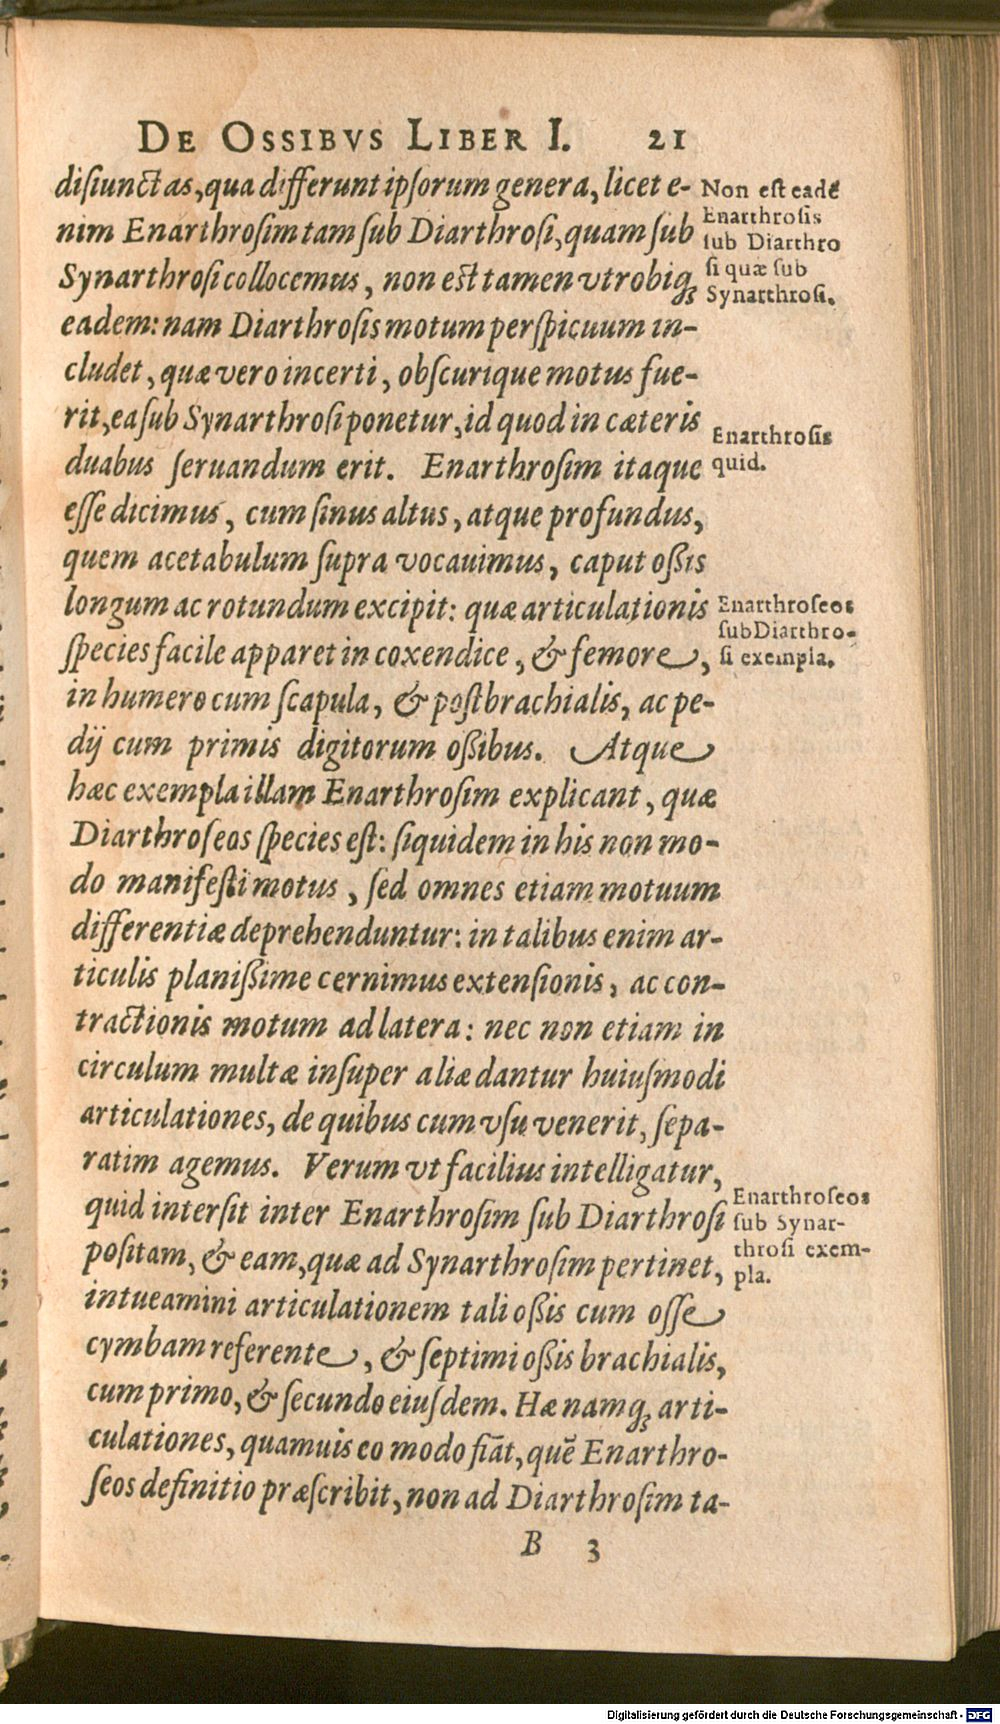 DE OSSIBVS LIBER I. 21
disiunctas, qua differunt ipsorum genera, licet e-
nim Enarthrosim tam sub Diarthrosi, quam sub
Synarthrosi collocemus, non est tamen vtrobiq;
eadem: nam Diarthrosis motum perspicuum in-
cludet, quæ vero incerti, obscurique motus fue-
rit, ea sub Synarthrosi ponetur, id quod in cæteris
duabus seruandum erit. Enarthrosim itaque
esse dicimus, cum sinus altus, atque profundus,
quem acetabulum supra vocauimus, caput oßis
longum ac rotundum excipit: quæ articulationis
species facile apparet in coxendice, & femore,
in humero cum scapula, & postbrachialis, ac pe-
dij cum primis digitorum oßibus. Atque
hæc exempla illam Enarthrosim explicant, quæ
Diarthroseos species est: siquidem in his non mo-
do manifesti motus, sed omnes etiam motuum
differentiæ deprehenduntur: in talibus enim ar-
ticulis planißime cernimus extensionis, ac con-
tractionis motum ad latera: nec non etiam in
circulum multæ insuper aliæ dantur huiusmodi
articulationes, de quibus cum vsu venerit, sepa-
ratim agemus. Verum vt facilius intelligatur,
quid intersit inter Enarthrosim sub Diarthrosi
positam, & eam, quæ ad Synarthrosim pertinet,
intueamini articulationem tali oßis cum osse
cymbam referente, & septimi oßis brachialis,
cum primo, & secundo eiusdem. Hæ namq; arti-
culationes, quamuis eo modo fiāt, quē Enarthro-
seos definitio præscribit, non ad Diarthrosim ta-
B 3
Non est eadē
Enarthrosis
sub Diarthro
si quæ sub
Synarthrosi.
Enarthrosis
quid.
Enarthroseos
sub Diarthro-
si exempla.
Enarthroseos
sub Synar-
throsi exem-
pla.
Digitalisierung gefördert durch die Deutsche Forschungsgemeinschaft - DFG